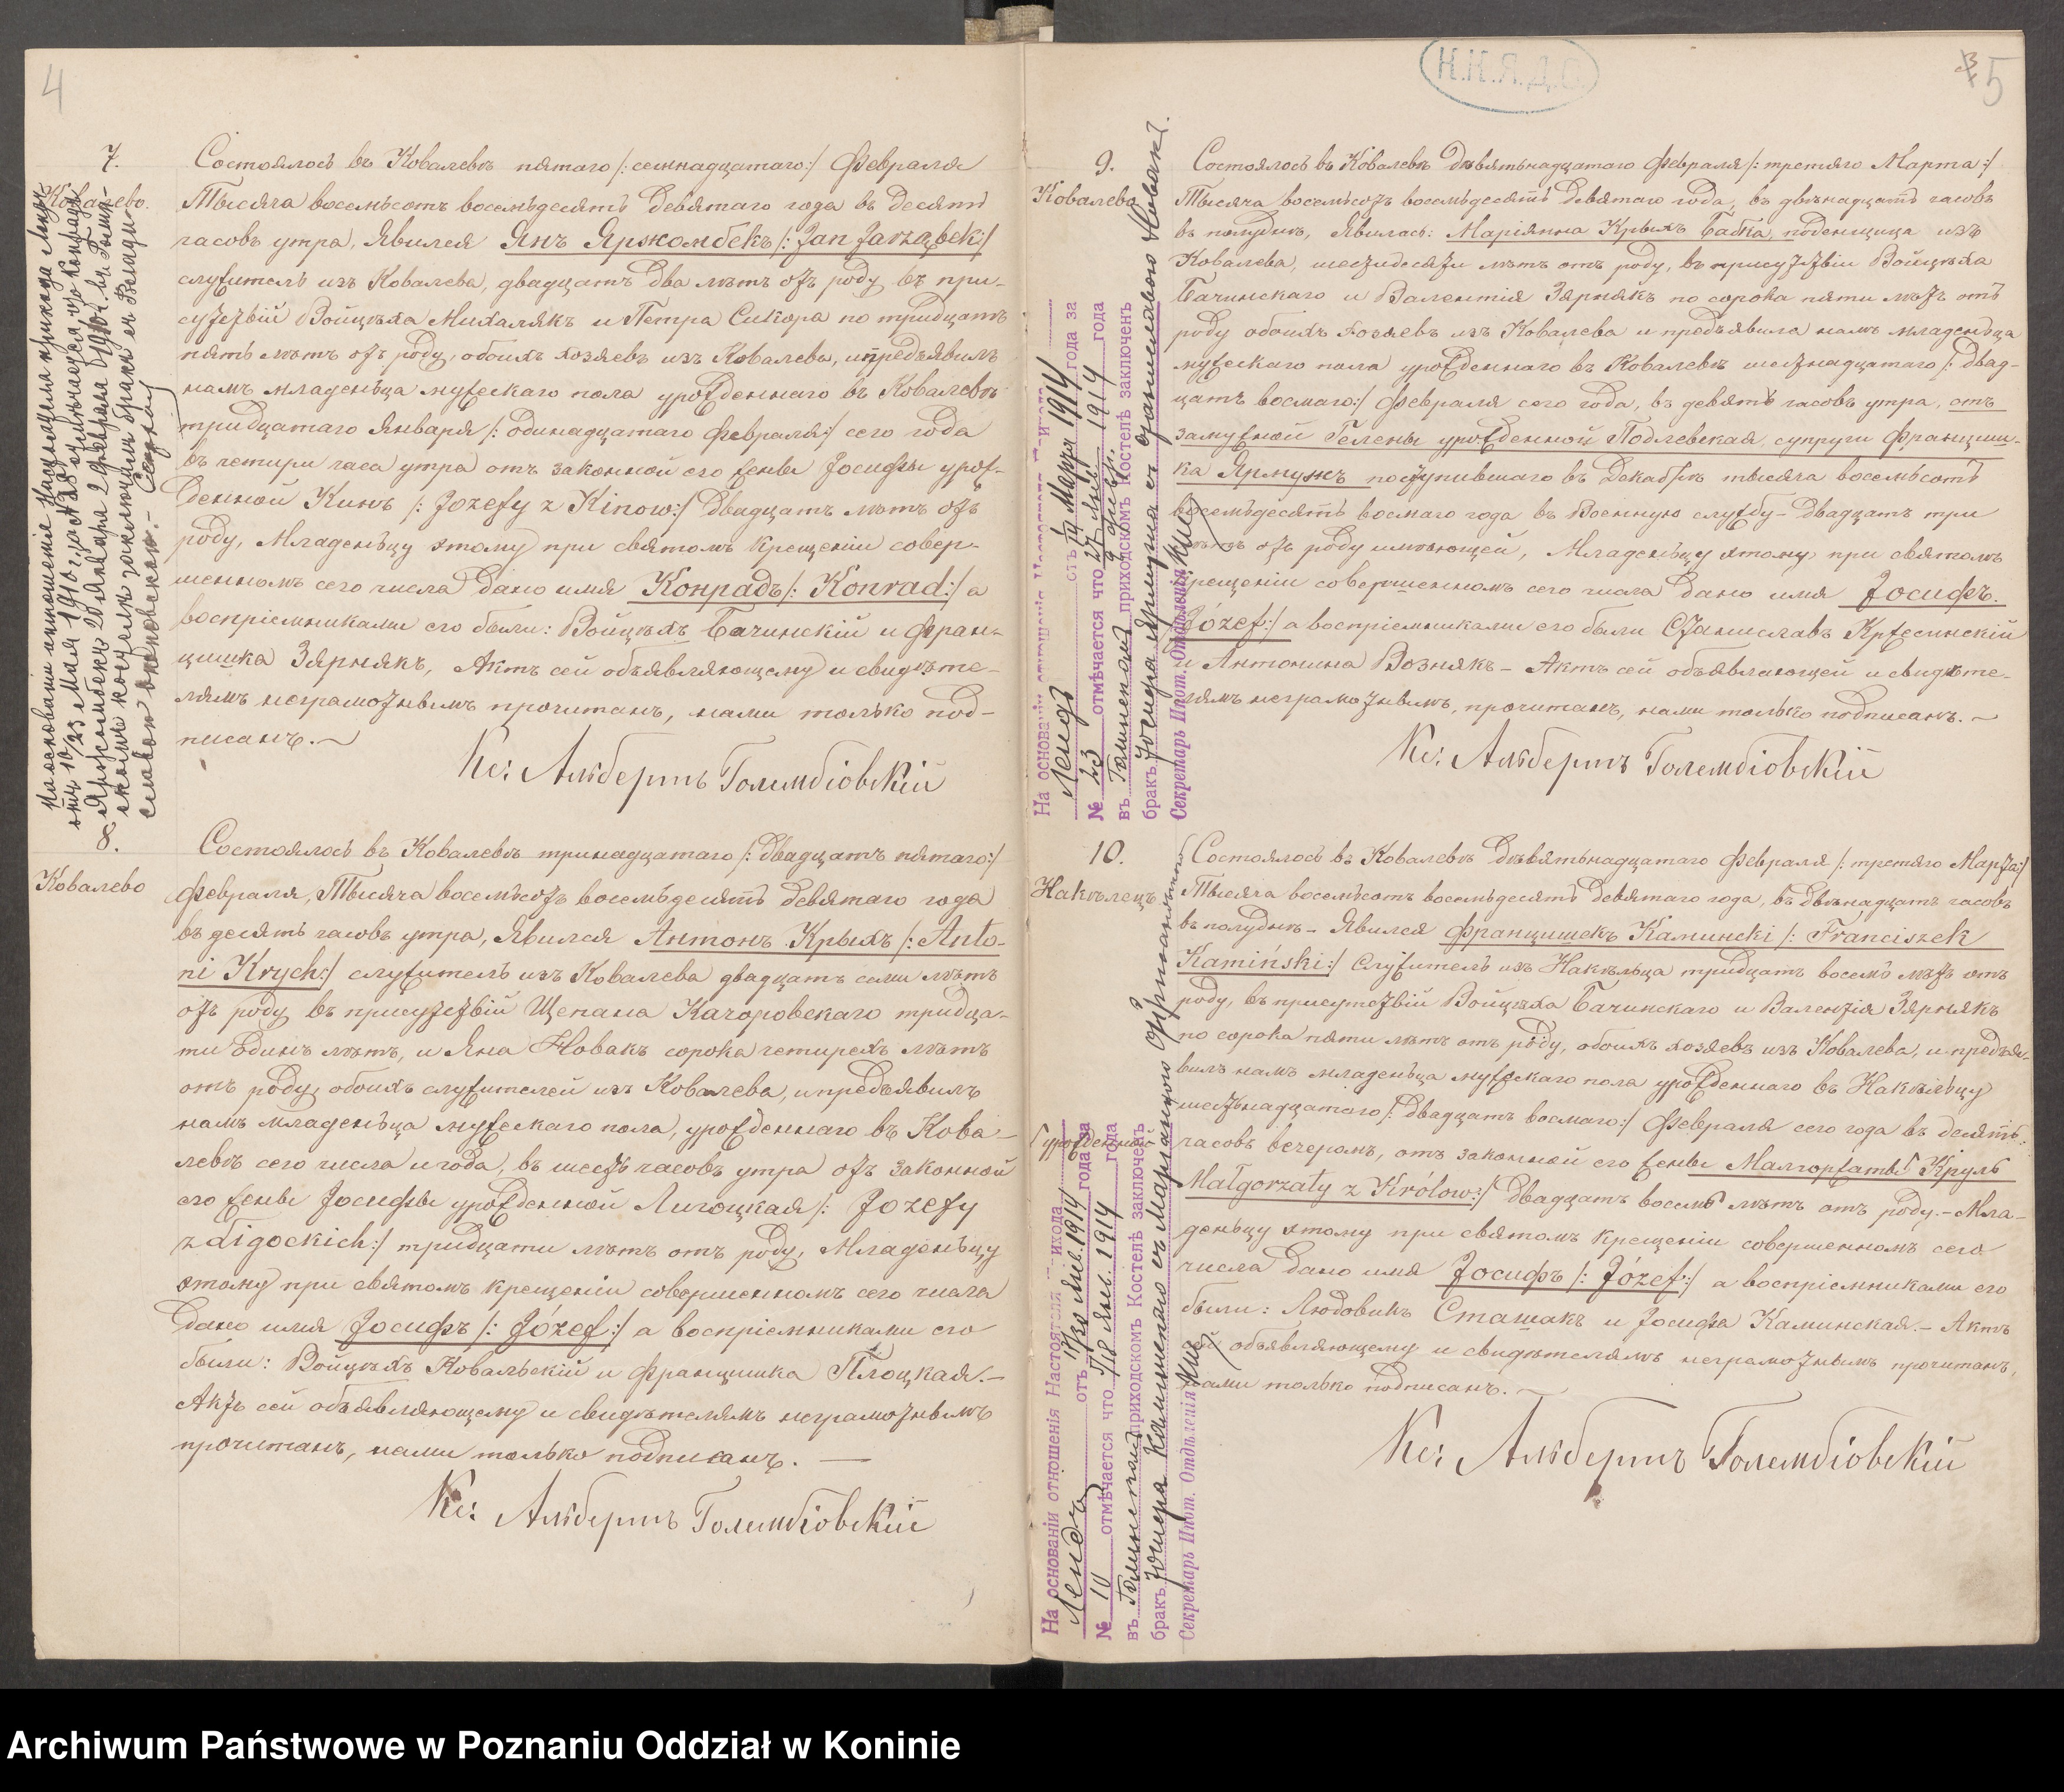 4
7.
Ковалево.
Состоялось въ Ковалевѣ пятаго /: семнадцатаго:/ Февраля
Тысяча восемьсотъ восемьдесятъ девятаго года въ десять
часовъ утра, Явился Янъ Яржомбекъ /: Jan Jarząbek:/
служитель изъ Ковалева, двадцать два лѣтъ отъ роду, въ при-
сутствій Войцѣха Михалякъ и Петра Сикора по тридцать
пять лѣтъ отъ роду, обоихъ хозяевъ изъ Ковалева, и предъявилъ
намъ младенца мужескаго пола урожденнаго въ Ковалевѣ
тридцатаго Января /: одинадцатаго Февраля:/ сего года
въ четыри часа утра отъ законной его жены Іосифы урож-
денной Кинъ /: Jozefy z Kinow:/ двадцать лѣтъ отъ
роду, Младенцу этому при святомъ крещеніи совер-
шенномъ сего числа дано имя Конрадъ /: Konrad:/ а
воспріемниками его были: Войцѣхъ Бачинскій и Фран-
цишка Зярнякъ, Актъ сей объявляющему и свидѣте-
лямъ неграмотнымъ прочитанъ, нами только под-
писанъ. —
Кс: Альбертъ Голембіовскій
На основаніи отношенія Настоятеля прихода
отъ 10/23 Мая 1910 г. за № 28 отмѣчается что Конрадъ
Яржомбекъ 20 Января 2 Февраля 1910 г. въ
скомъ костелѣ заключилъ бракъ съ Влади-
славою
8.
Ковалево
Состоялось въ Ковалевѣ тринадцатаго /: двадцать пятаго:/
Февраля, Тысяча восемьсотъ восемьдесятъ девятаго года
въ десять часовъ утра, Явился Антонъ Крыхъ /: Anto-
ni Krych:/ служитель изъ Ковалева двадцать семи лѣтъ
отъ роду въ присутствій Щепана Качоровскаго тридца-
ти одинъ лѣтъ, и Яна Новакъ сорока четырехъ лѣтъ
отъ роду, обоихъ служителей изъ Ковалева, и предъявилъ
намъ младенца мужескаго пола, урожденнаго въ Кова-
левѣ сего числа и года, въ шесть часовъ утра отъ законной
его жены Іосифы урожденной Лигоцкая /: Jozefy
z Ligockich:/ тридцати лѣтъ отъ роду, Младенцу
этому при святомъ крещеніи совершенномъ сего числа
дано имя Іосифъ /: Józef:/ а воспріемниками его
были: Войцѣхъ Ковальскій и Францишка Плоцкая. —
Актъ сей объявляющему и свидѣтелямъ неграмотнымъ
прочитанъ, нами только подписанъ. —
Кс: Альбертъ Голембіовскій
Н.К.Я.Д.С.
5
9.
Ковалево
Состоялось въ Ковалевѣ девятьнадцатаго Февраля /: третяго Марта:/
Тысяча восемьсотъ восемьдесятъ девятаго года, въ двѣнадцать часовъ
въ полудни, Явилась: Маріянна Крыхъ бабка, поденщица изъ
Ковалева, шестидесяти лѣтъ отъ роду, въ присутствіи Войцѣха
Бачинскаго и Валентія Зярнякъ по сорока пяти лѣтъ отъ
роду обоихъ хозяевъ изъ Ковалева и предъявила намъ младенца
мужескаго пола урожденнаго въ Ковалевѣ шестнадцатаго /: двад-
цать восмаго:/ Февраля сего года, въ девять часовъ утра, отъ
замужной Гелены урожденной Подлевская супруги Францыш-
ка Ярмужъ поступившаго въ Декабрѣ тысяча восемьсотъ
восемьдесятъ восмаго года въ Военную службу — двадцать три
лѣтъ отъ роду имѣющей, Младенцу этому при святомъ
крещеніи совершенномъ сего числа дано имя Іосифъ.
Józef:/ а воспріемниками его были Станиславъ Кржесинскій
и Антонина Вознякъ — Актъ сей объявляющей и свидѣте-
лямъ неграмотнымъ, прочитанъ, нами только подписанъ. —
Кс: Альбертъ Голембіовскій
На основаніи отношенія Настоятеля прихода
Лендъ отъ 14 Марта 1914 года за
№ 43 отмѣчается что 27 Янв. 9 Февр. 1914 года
въ приходскомъ Костелѣ заключенъ
бракъ Іосифа Ярмужа съ Станиславою Новакъ.
Секретарь Ипот. Отдѣленія
10.
Накѣлецъ
Состоялось въ Ковалевѣ девятьнадцатаго Февраля /: третяго Марта:/
Тысяча восемьсотъ восемьдесятъ девятаго года, въ двѣнадцать часовъ
въ полудни — Явился Францишекъ Каминскі /: Franciszek
Kamiński:/ Служитель изъ Накѣльца тридцать восемь лѣтъ отъ
роду, въ присутствій Войцѣха Бачинскаго и Валентія Зярнякъ
по сорока пяти лѣтъ отъ роду, обоихъ хозяевъ изъ Ковалева, и предъя-
вилъ намъ младенца мужескаго пола урожденнаго въ Накѣльцу
шестьнадцатаго /: двадцать восмаго:/ Февраля сего года въ десять
часовъ вечеромъ, отъ законной его жены Малгоржаты Круль
урожденной
Małgorzaty z Królow:/ двадцать восемь лѣтъ отъ роду. — Мла-
денцу этому при святомъ крещеніи совершенномъ сего
числа дано имя Іосифъ /: Józef:/ а воспріемниками его
были: Людовикъ Сташакъ и Іосифа Каминская. — Актъ
сей объявляющему и свидѣтелямъ неграмотнымъ прочитанъ,
нами только подписанъ. —
Кс: Альбертъ Голембіовскій
На основаніи отношенія Настоятеля прихода
Лендъ отъ 17/30 Янв. 1914 года за
№ 10 отмѣчается что 1914 года
въ приходскомъ Костелѣ заключенъ
бракъ Іосифа Каминскаго съ Маріанною
Секретарь Ипот. Отдѣленія
Archiwum Państwowe w Poznaniu Oddział w Koninie